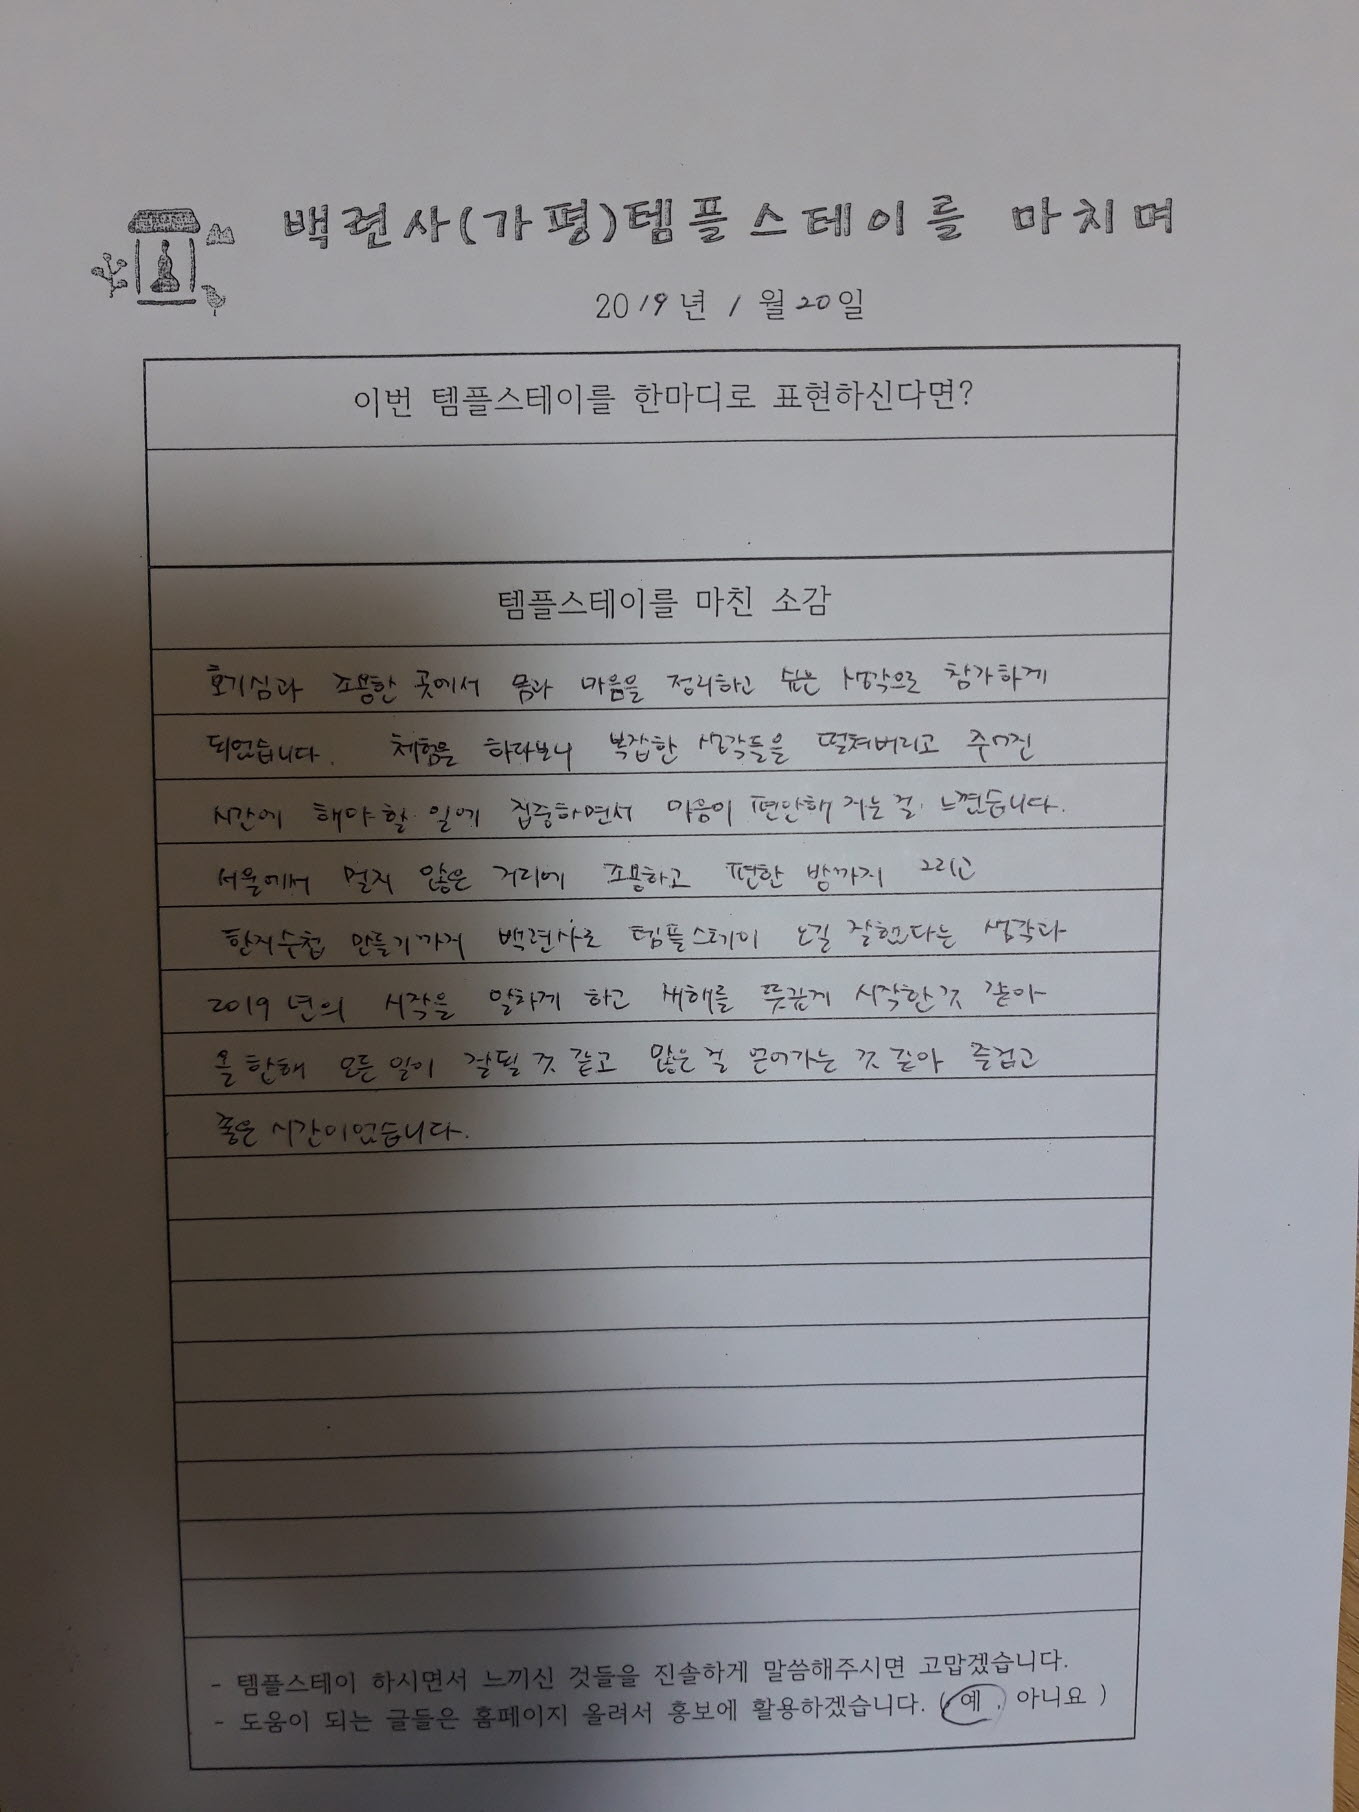 백련사(가평)템플스테이를 마치며
2019년 1월 20일
이번 템플스테이를 한마디로 표현하신다면?
템플스테이를 마친 소감
호기심과 조용한 곳에서 몸과 마음을 정리하고 싶은 생각으로 참가하게
되었습니다. 체험을 하다보니 복잡한 생각들을 떨쳐버리고 주어진
시간에 해야할 일에 집중하면서 마음이 편안해 지는 걸 느꼈습니다.
서울에서 멀지 않은 거리에 조용하고 편한 방까지 그리고
한지수첩 만들기까지 백련사로 템플스테이 오길 잘했다는 생각과
2019년의 시작을 알차게 하고 새해를 뜻깊게 시작한 것 같아
올 한해 모든 일이 잘될 것 같고 많은 걸 얻어가는 것 같아 즐겁고
좋은 시간이었습니다.
- 템플스테이 하시면서 느끼신 것들을 진솔하게 말씀해주시면 고맙겠습니다.
- 도움이 되는 글들은 홈페이지 올려서 홍보에 활용하겠습니다. ( 예 , 아니요 )